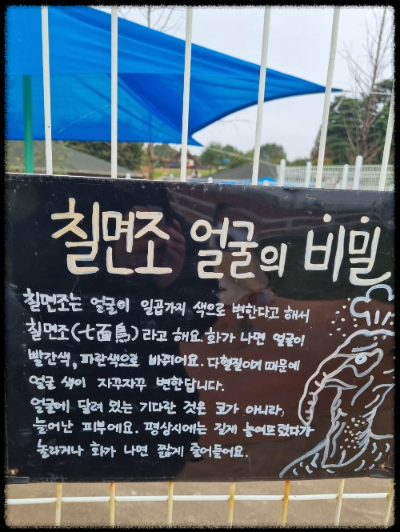 칠면조 얼굴의 비밀
칠면조는 얼굴이 일곱가지 색으로 변한다고 해서
칠면조(七面鳥)라고 해요. 화가 나면 얼굴이
빨간색, 파란색으로 바뀌어요. 다혈질이기 때문에
얼굴 색이 자꾸자꾸 변한답니다.
얼굴에 달려 있는 기다란 것은 코가 아니라,
늘어난 피부에요. 평상시에는 길게 늘어뜨렸다가
놀라거나 화가 나면 짧게 줄어들어요.